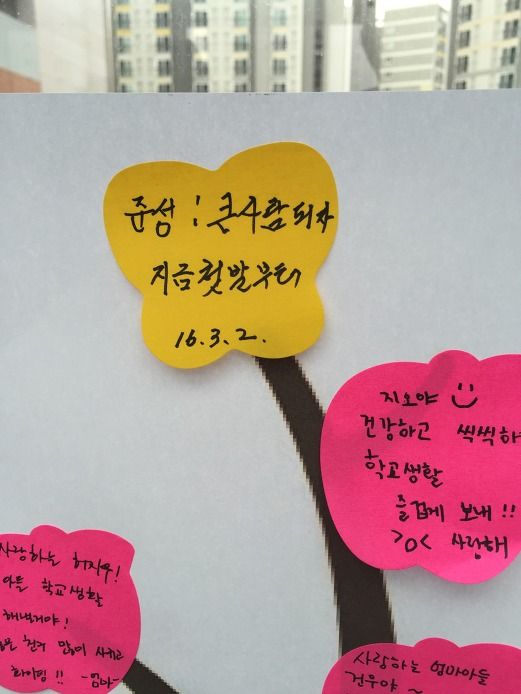 준성 : 큰사람되자
지금첫발부터
16.3.2.
지오야
건강하고 씩씩하
학교생활
즐겁게 보내!!
>o< 사랑해
사랑하는 허지우!
아들 학교생활
해낼거야!
친구 많이 사귀고
화이팅!! -엄마-
사랑하는 엄마아들
건우야 ~